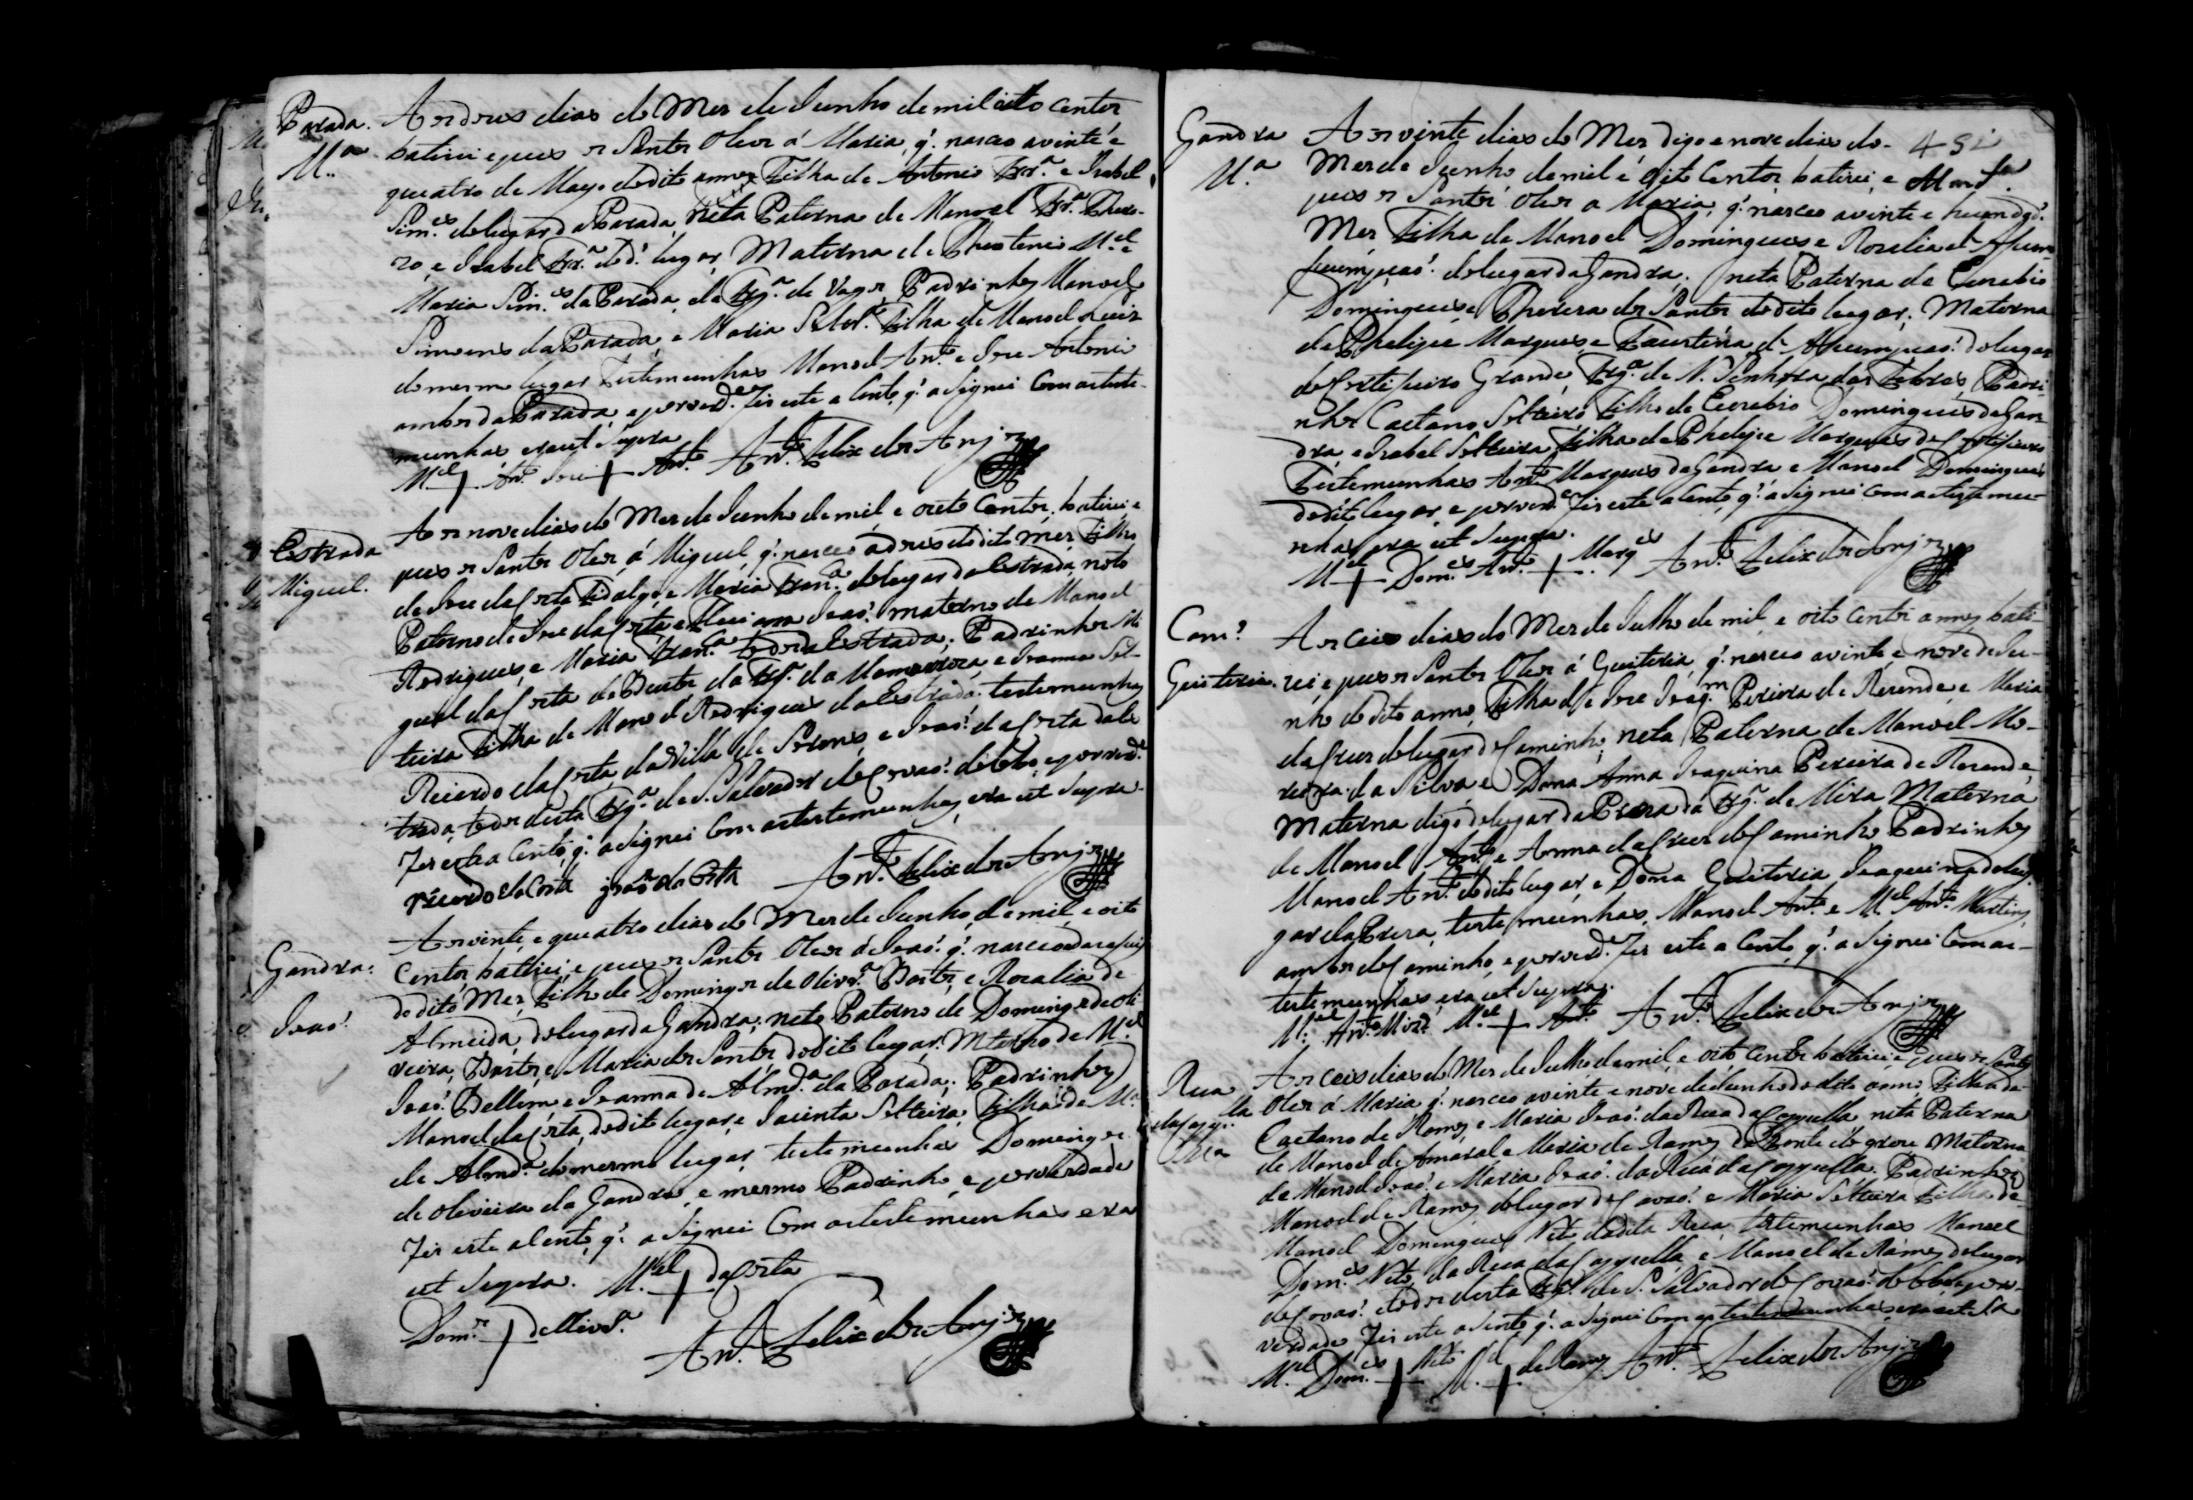 Parada.
M.ª
Aos dous dias do Mes de Junho de mil oito centos
batizei e pus os Santos Oleos á Maria, q̃. nasceo a vinte e
quatro de Mayo do dito anno, Filha de Antonio Frr.ª e Izabel
Sim.es do lugar da Parada, neta Paterna de Manoel Frr.ª
e Izabel Frr.ª do d.º lugar, Materna de M.el e
Maria Sim.es da Parada, da frg.ª de Vagos, Padrinhos Manoel
Simoens da Parada, e Maria Solt.rª Filha de Manoel Luiz
do mesmo lugar Testemunhas Manoel Ant.º e Joze Antonio
ambos da Parada, e por verd.e fiz este asento, q̃. asignei com as teste-
munhas era ut supra
M.el + Ant.º Joze + Ant.º Ant.º Felix dos Anjos
Estrada
Miguel.
Aos nove dias do Mes de Junho de mil e oito centos, batizei e
pus os Santos Oleos á Miguel, q̃. nasceo a dous do dito mes, Filho
de Joze da Costa Fidalgo, e Maria Fran.ca do lugar da Estrada, neto
Paterno de Joze da Costa e Luciana Joaõ. materno de Manoel
Rodrigues, e Maria Fran.ca todos da Estrada; Padrinhos Mi
guel da Costa do da frg.ª da Mamarroza, e Joanna Sol-
teira Filha de Manoel Rodrigues da Estrada. testemunhas
Ricardo da Costa, da Villa de Sorens, e Joaõ. da Costa da Es
trada, todos desta frg.ª de S. Salvador de Covaõ. do Lobo, e por verd.e
fiz este asento, q̃. asignei com as testemunhas, era ut supra.
ricardo da Costa joaõ da Costa Ant.º Felix dos Anjos
Gandra:
Joaõ.
Aos vinte, e quatro dias do Mes de Junho, de mil, e oito
Centos, batizei, e pus os Santos Oleos á Joaõ. q̃. nasceo a dezaseis
do dito Mes, Filho de Domingos de Oliv.rª Basto, e Rozalia de
Almeida, do lugar da Gandra; neto Paterno de Domingos de Oli
veira, Basto, e Maria dos Santos, do dito lugar. Materno de M.el
Joaõ. Bellem e Joanna de Almd.ª da Parada; Padrinhos
Manoel da Costa, do dito lugar, e Jacinta Solteira, Filha de M.el
de Almd.ª do mesmo lugar, testemunhas Domingos
de Oliveira da Gandra, e mesmo Padrinho, e por verdade
fiz este asento, q̃. asignei Com as testemunhas era
ut supra. M.el + da Costa
Dom.os + de Oliv.rª
Ant.º Felix dos Anjos
Gandra
M.ª
Aos vinte dias do Mes digo e nove dias do-
Mes de Junho de mil é oito Centos, batizei, e
pus os Santos Oleos a Maria, q̃. nasceo a vinte e hum do d.º
Mes Filha de Manoel Domingues e Rozalia d'Asum-
sumpçaõ. do lugar da Gandra; neta Paterna de Euzebio
Domingues, e Thereza dos Santos do dito lugar; Materna
de Phelipe Marques, e Faustina, d'Asumpçaõ. do lugar
de Cortiseiro Grande, frg.ª de N. Senhora das Febras, Padri-
nhos Caetano Solteiro, Filho de Euzebio Domingues da Gan-
dra, e Izabel Solteira, Filha de Phelipe Marques de Cortiseiro
Testemunhas Ant.º Marques da Gandra e Manoel Domingues
do dito lugar, e por verd.e fiz este asento, q̃. asignei com as testemu-
nhas, era, ut supra.
M.el + Dom.es Ant.º + Marq.es Ant.º Felix dos Anjos
Cam.º
Guiteria.
Aos Ceis dias do Mes de Julho de mil, e oito centos annos bati-
zei, e pus os Santos Oleos á Guiteria, q̃. nasceo a vinte, e nove de Ju-
nho do dito anno, Filha de Joze Joaq.m Pereira de Rezende, e Maria
da Crus do lugar do Caminho, neta Paterna de Manoel Mo-
reira da Silva e Dona Anna Joaquina Pereira de Rezende,
Materna digo do lugar da Preza da frg.ª de Mira Materna
de Manoel Ant.º, e Anna da Crus do Caminho Padrinhos
Manoel Ant.º do dito lugar, e Dona Guiteria Joaquina do lu
gar da Preza, testemunhas, Manoel Ant.º e M.el Ant.º Martins
ambos do Caminho, e por verd.e fiz este asento, q̃. asignei com as-
testemunhas, era ut supra.
M.el Ant.º M.el + Ant.º Ant.º Felix dos Anjos
Rua
M.ª
Aos ceis dias do Mes de Julho de mil, e oito centos batizei, e pus os Santos
Oleos á Maria q̃. nasceo a vinte e nove de Junho do dito anno, Filha de
Caetano de Ramos, e Maria Joaõ. da Rua da Cappella neta Paterna
de Manoel de Amaral e Maria de Ramos da Materna
de Manoel Joaõ. e Maria Joaõ. da Rua da Cappella. Padrinhos
Manoel de Ramos do lugar de Covaõ. e Maria Solteira Filha de
Manoel Domingues Neto da dita Rua, testemunhas Manoel
Dom.es Neto, da Rua da Cappella, e Manoel de Ramos do lugar
de Covaõ. todos desta frg.ª de S. Salvador de Covaõ. do Lobo, e por
verdade fiz este asento q̃. asignei com as testemunhas, era ut S.ª
M.el Dom.es + Neto M.el + de Ramos Ant.º Felix dos Anjos